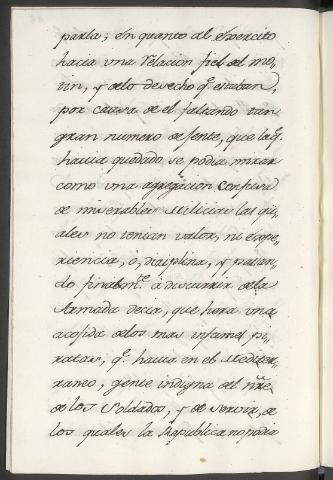 parla; En quanto al Exercito
hacia una Relacion fiel del mo-
tin, y de lo desecho q.e estaban,
por causa de el faltando tan
gran numero de Jente, que la q.e
havia quedado se podia mirar
como una agregacion confusa
de miserables Milicias las qu-
ales no tenian valor, ni Expe-
riencia, ó, disiplina, y pasan-
do finalm.te a discurrir de la
Armada decir, que hera una
acojida de los mas infames pi-
ratas, q.e havia en el Mediter-
raneo, gente indigna del nñe
de los Soldados, y de servir, de
los quales la Republica no podia